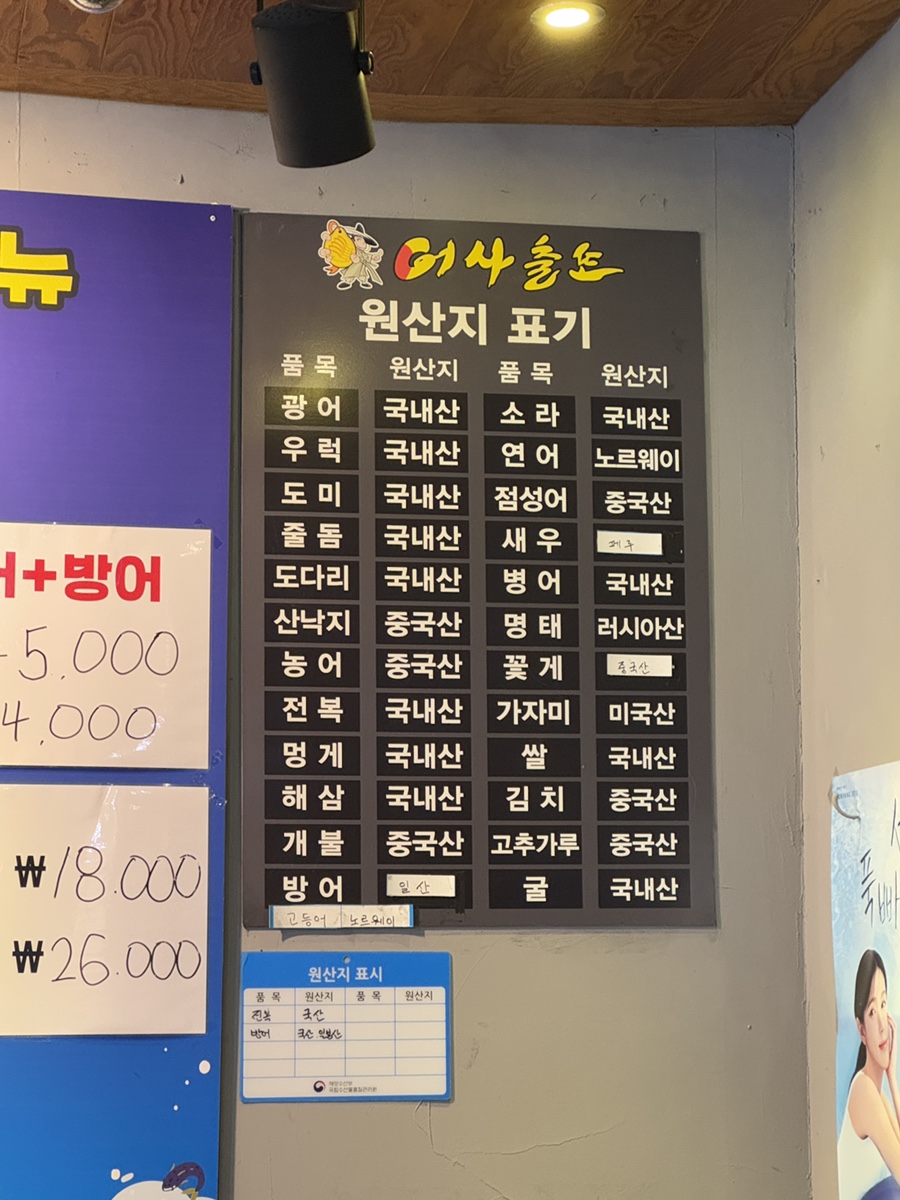 뉴
어+방어
5,000
4,000
₩18.000
₩26.000
어사출또
원산지 표기
품목 원산지 품목 원산지
광어 국내산 소라 국내산
우럭 국내산 연어 노르웨이
도미 국내산 점성어 중국산
줄돔 국내산 새우 페루
도다리 국내산 병어 국내산
산낙지 중국산 명태 러시아산
농어 중국산 꽃게 중국산
전복 국내산 가자미 미국산
멍게 국내산 쌀 국내산
해삼 국내산 김치 중국산
개불 중국산 고추가루 중국산
방어 일산 굴 국내산
고등어 노르웨이
원산지 표시
품목 원산지 품목 원산지
전복 국산
방어 국산.일본산
해양수산부
국립수산물품질관리원